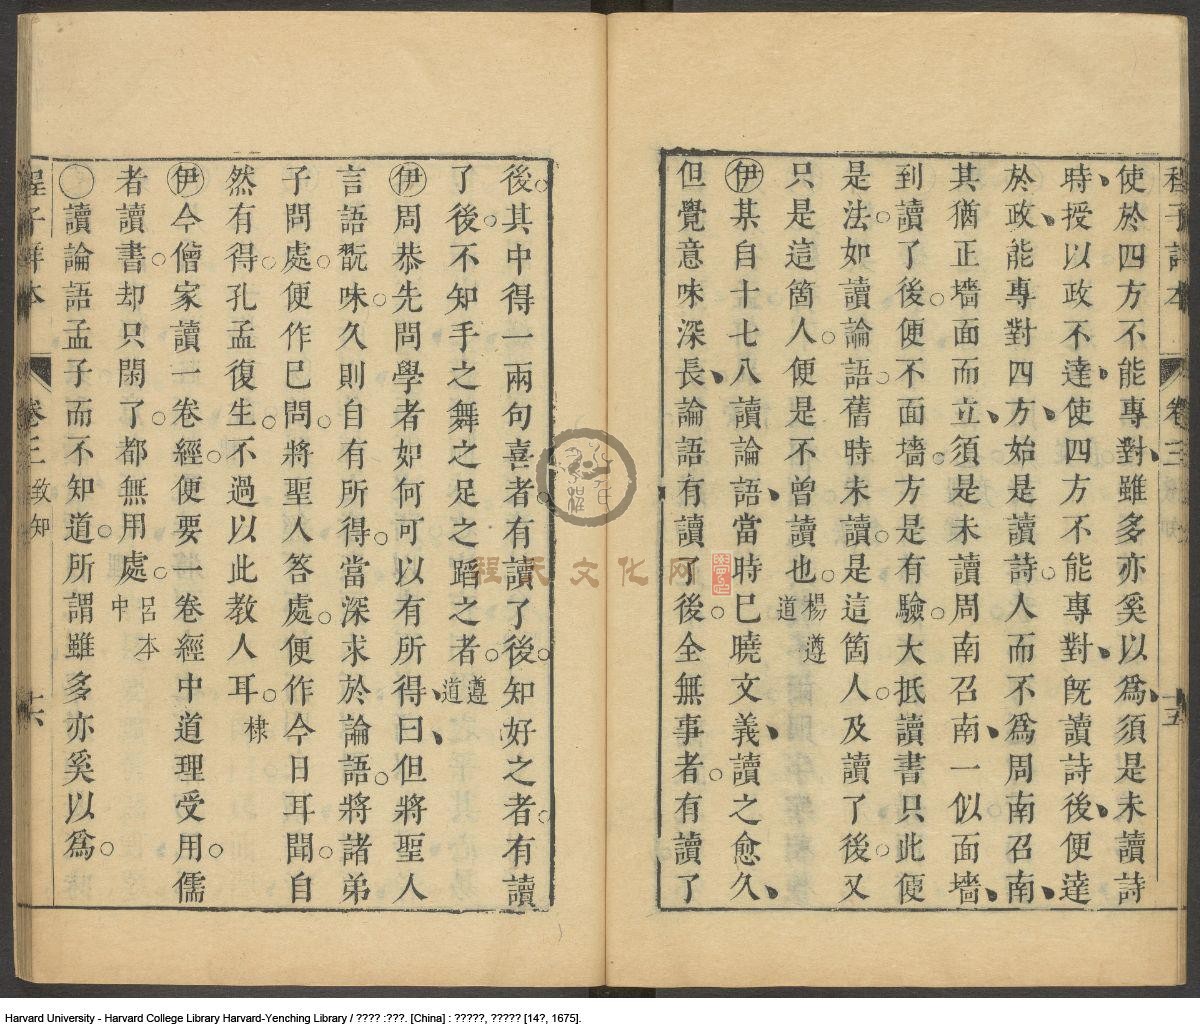 使於四方不能專對雖多亦奚以爲須是未讀詩
時授以政不達使四方不能專對旣讀詩後便達
於政能專對四方始是讀詩人而不爲周南召南
其猶正墻面而立須是未讀周南召南一似面墻
到讀了後便不面墻方是有驗大抵讀書只此便
是法如讀論語舊時未讀是這箇人及讀了後又
只是這箇人便是不曾讀也楊遵道
伊某自十七八讀論語當時已曉文義讀之愈久
但覺意味深長論語有讀了後全無事者有讀了
後其中得一兩句喜者有讀了後知好之者有讀
了後不知手之舞之足之蹈之者遵道
伊周恭先問學者如何可以有所得曰但將聖人
言語翫味久則自有所得當深求於論語將諸弟
子問處便作已問將聖人答處便作今日耳聞自
然有得孔孟復生不過以此教人耳棣
伊今僧家讀一卷經便要一卷經中道理受用儒
者讀書却只閑了都無用處呂本中
〇讀論語孟子而不知道所謂雖多亦奚以爲
卷三
致知
十六
程氏文化网
Harvard University - Harvard College Library Harvard-Yenching Library / ???? :???. [China] : ?????, ????? [14?, 1675].